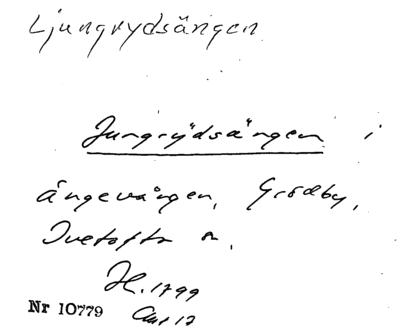 Ljungrydsängen
Jungrÿdsängen i
ängevången, Grödby,
Ivetofta sn,
H. 1799
Nr 10779 Akt 12